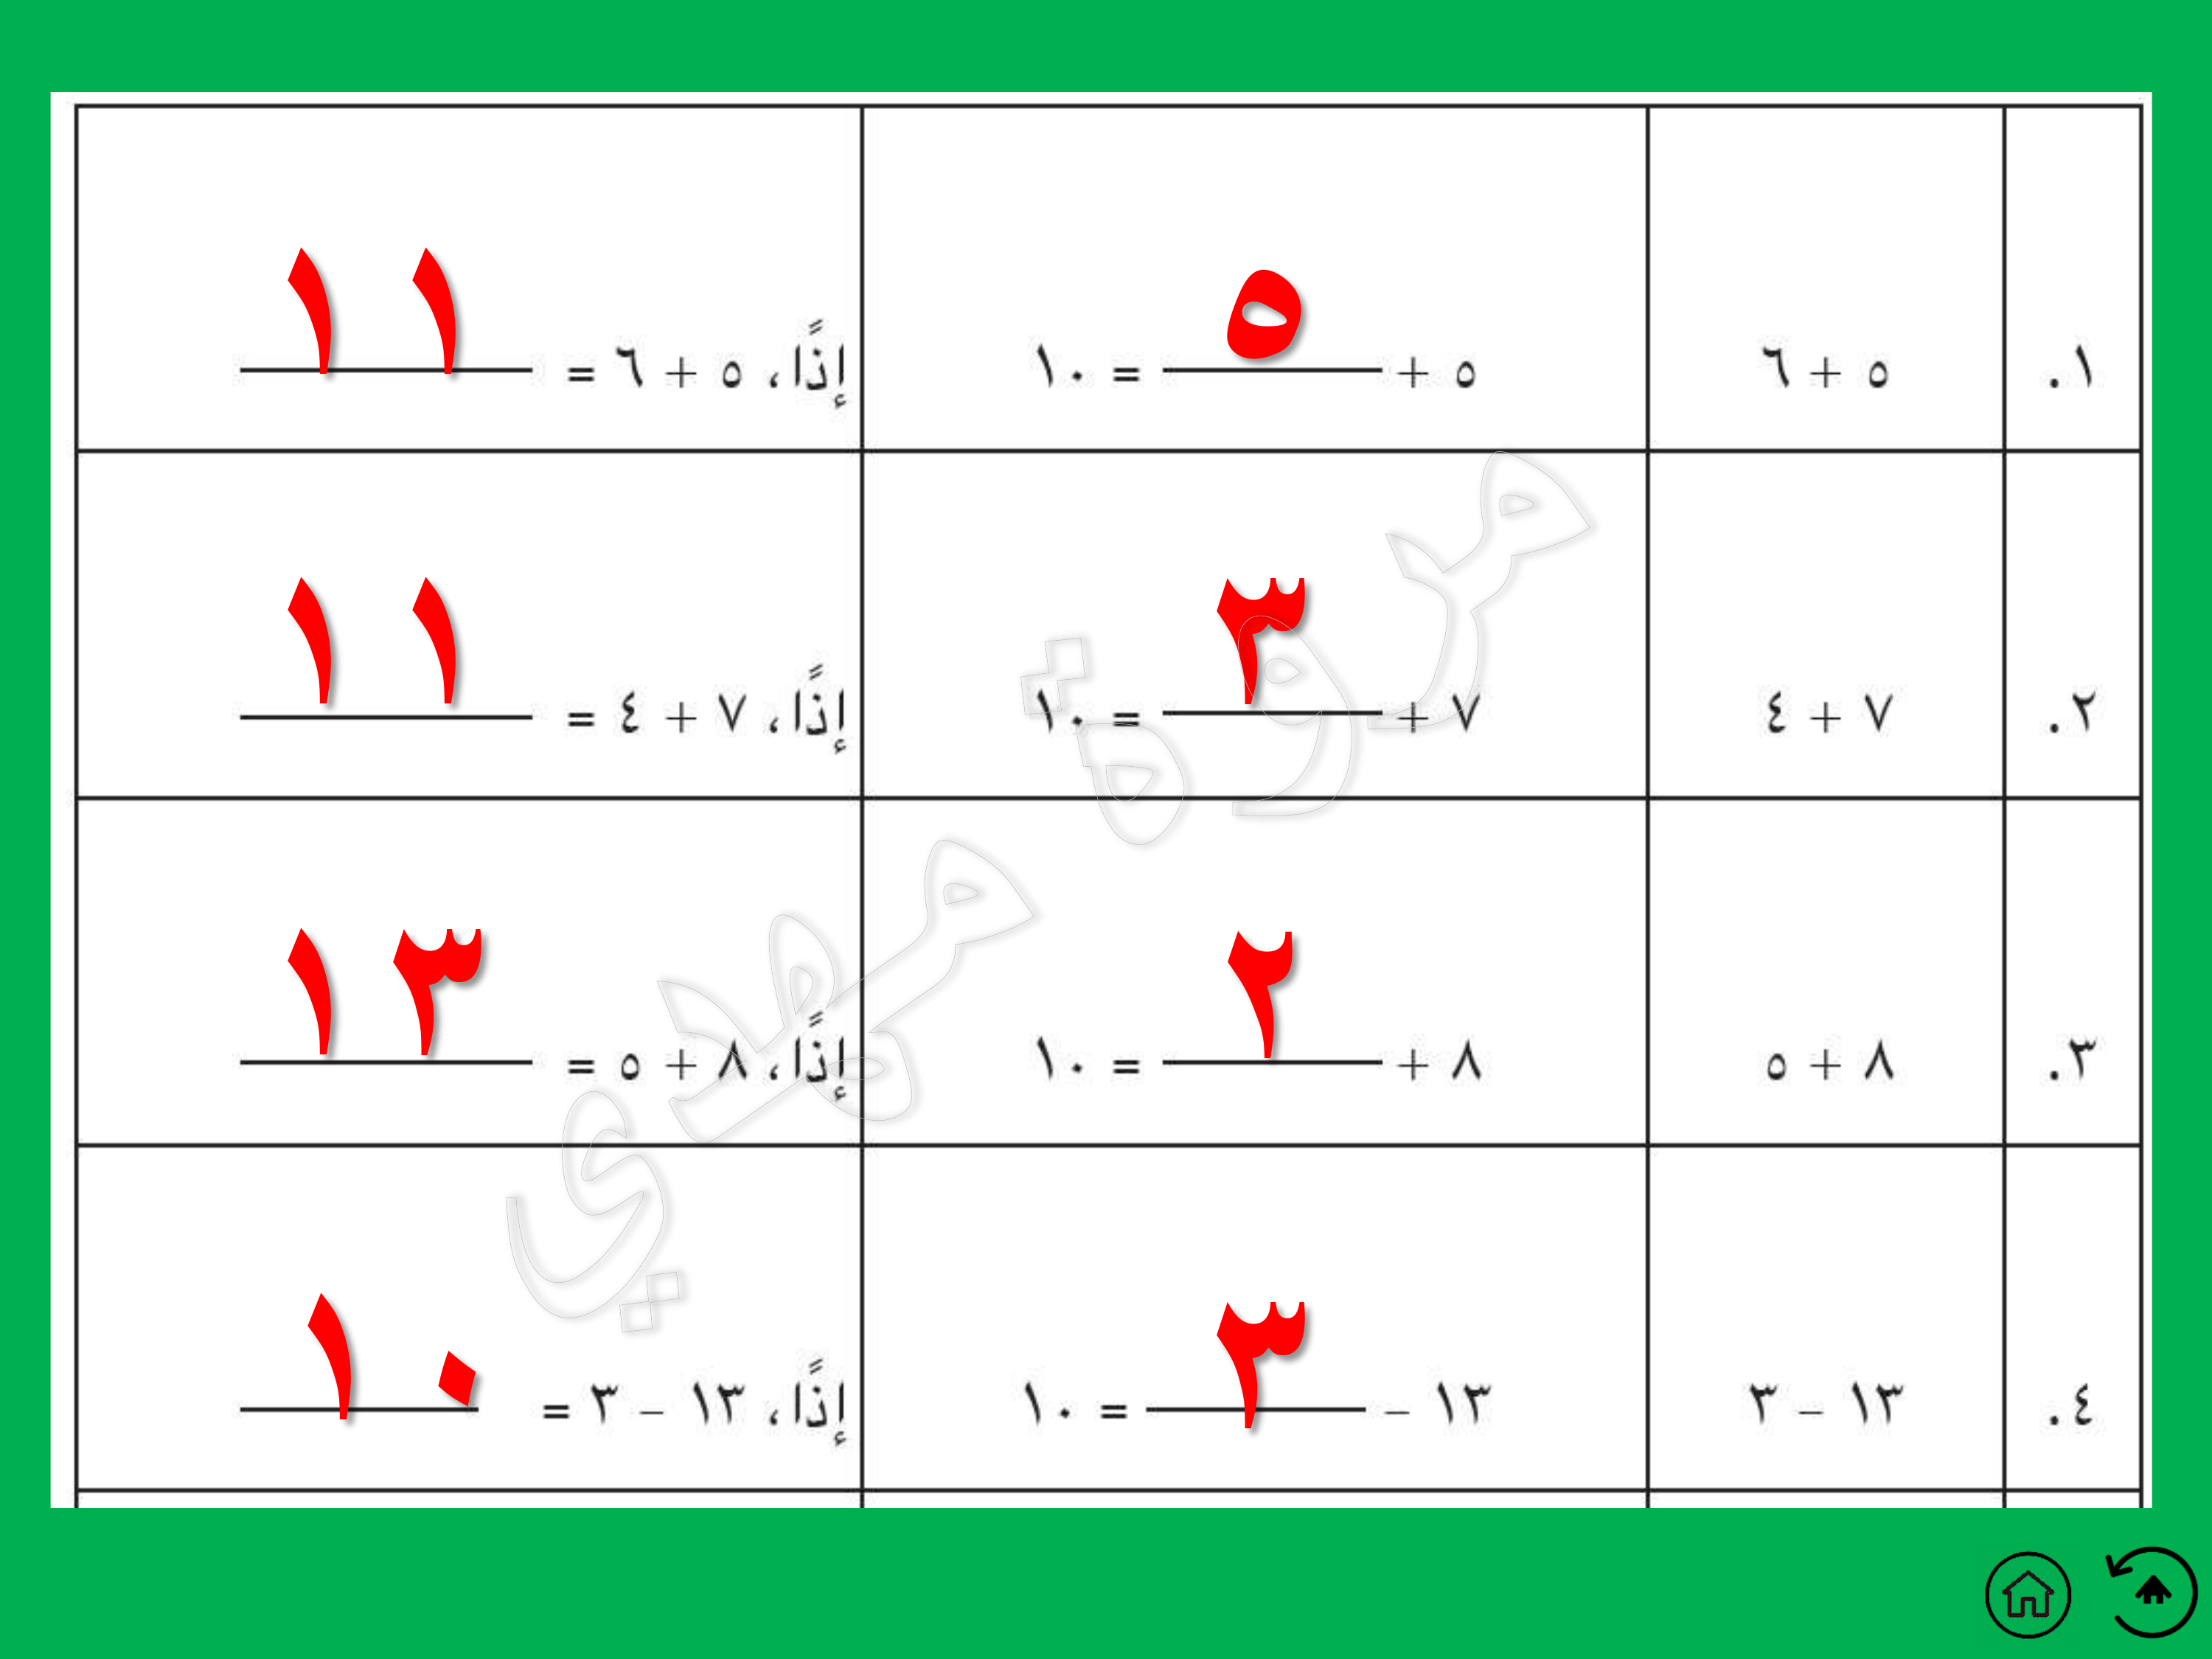 ١. ٥ + ٦ ٥ + ٥ = ١٠ إذًا، ٥ + ٦ = ١١
٢. ٧ + ٤ ٧ + ٣ = ١٠ إذًا، ٧ + ٤ = ١١
٣. ٨ + ٥ ٨ + ٢ = ١٠ إذًا، ٨ + ٥ = ١٣
٤. ١٣ – ٣ ١٣ – ٣ = ١٠ إذًا، ١٣ – ٣ = ١٠
مروة مهدي